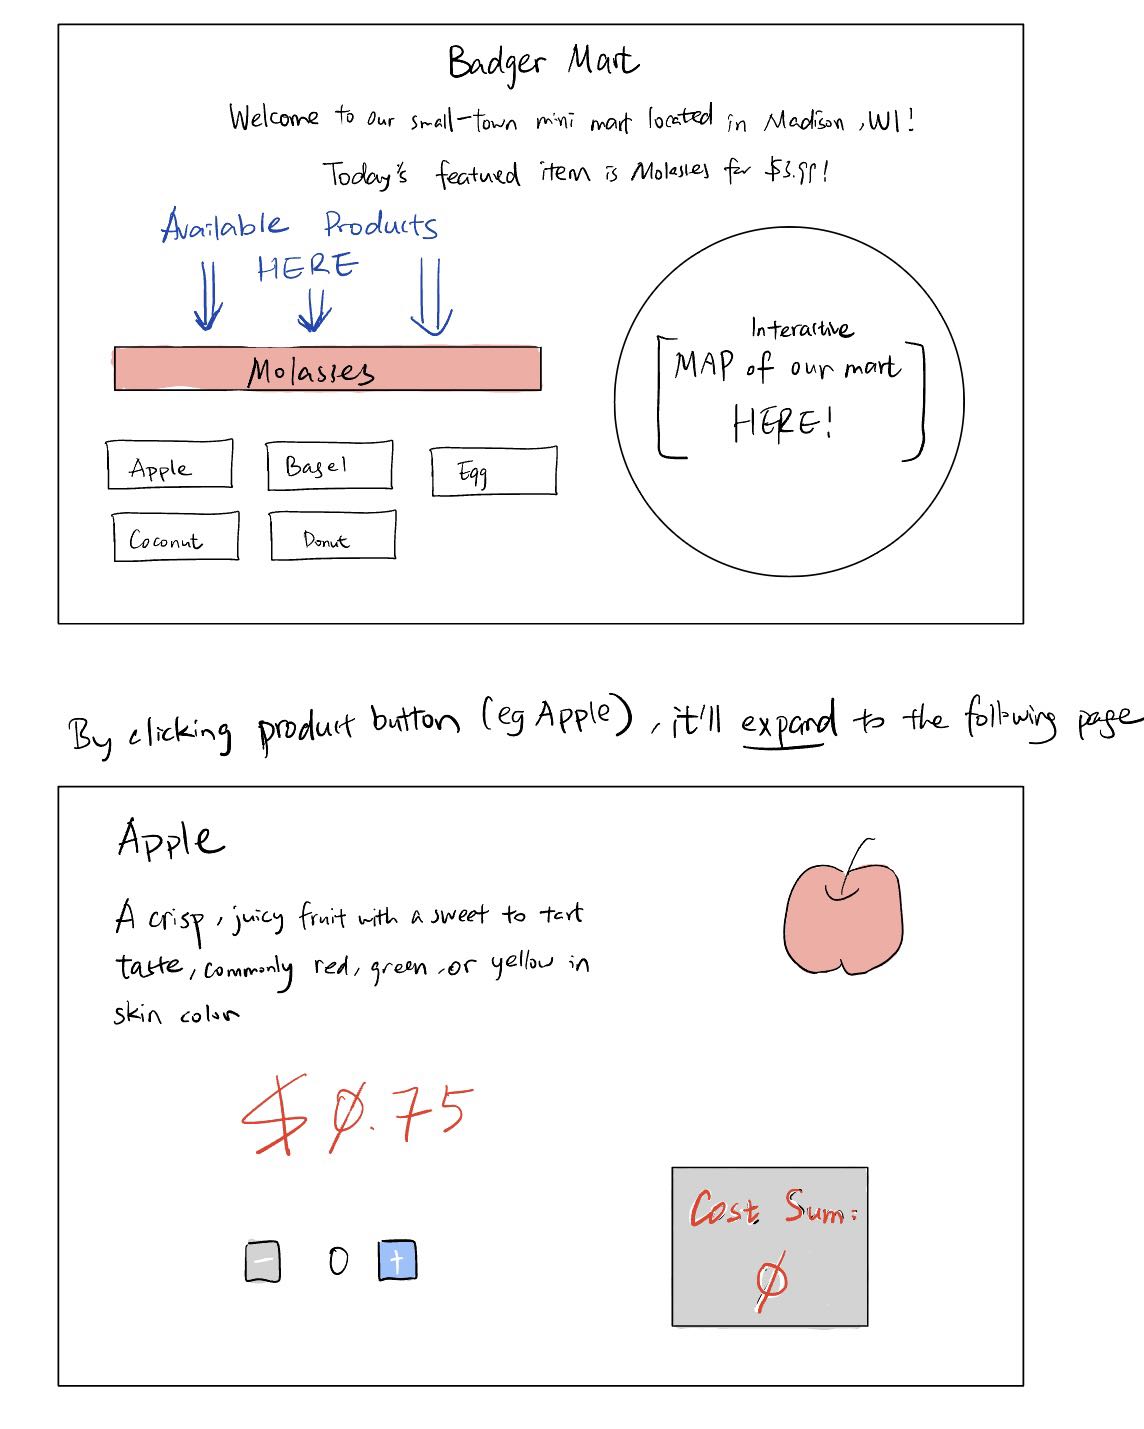 Badger Mart
Welcome to our small-town mini mart located in Madison, WI!
Today's featured item is Molasses for $3.99!
Available Products
HERE
Molasses
Apple
Bagel
Egg
Coconut
Donut
Interactive
[MAP of our mart
HERE!]
By clicking product button (eg Apple), it'll expand to the following page
Apple
A crisp, juicy fruit with a sweet to tart
taste, commonly red, green, or yellow in
skin color
$0.75
- 0 +
Cost Sum:
0